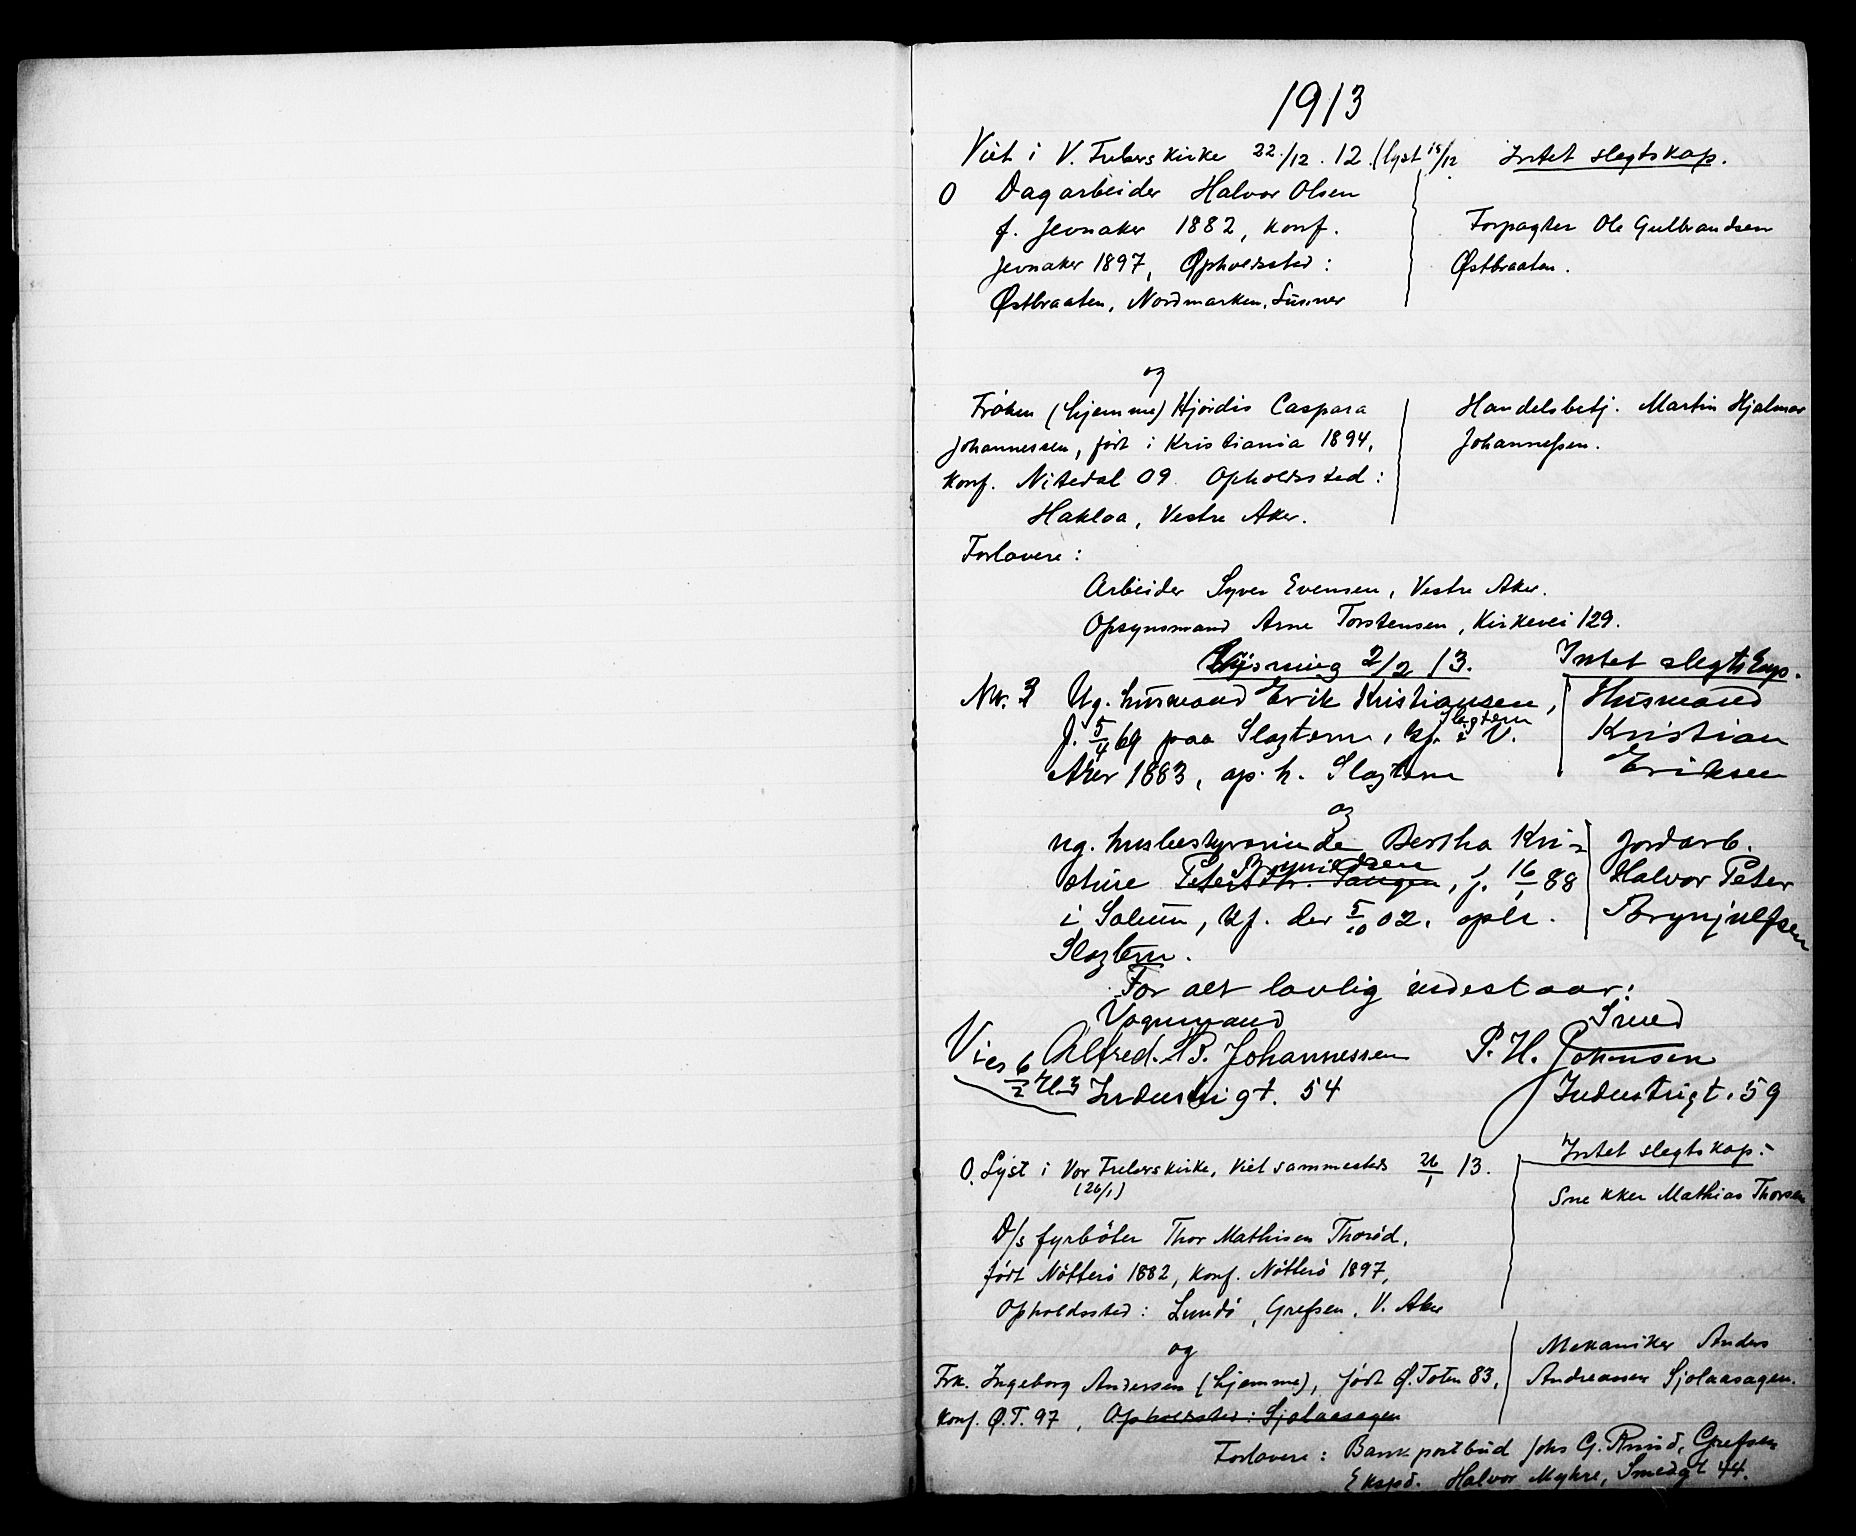 1913
Viet i V. Frelsers kirke 22/12. 12. (lyst 15/12 Intet slegtskap.
O Dagarbeider Halvor Olsen
f. Jevnaker 1882, konf. Forpagter Ole Gulbrandsen
Jevnaker 1897, Opholdssted: Østbraaten.
Østbraaten, Nordmarken, Lunner
og
Frøken (hjemme) Hjørdis Caspara Handelsbetj. Martin Hjalmar
Johannessen, født i Kristiania 1894, Johannessen.
konf. Nitedal 09. Opholdssted:
Hakloa, Vestre Aker.
Forlovere:
Arbeider Syver Evensen, Vestre Aker.
Opsynsmand Arne Torstensen, Kirkevei 129.
Lysning 2/2 13. Intet slegtskap.
Nr. 3 Ug. husmand Erik Kristiansen, Husmand
Slagtern
f. 5/4 69 paa Slagtern, kf. i V. Kristian
Aker 1883, op. h. Slagtern Eriksen
og
ug. husbestyrerinde Bertha Kri- Jordarb.
Brynildsen
stine Tangen, f. 16/1 88 Halvor Peter
i Solum, kf. der 5/10 02. oph. Brynjulfsen
Slagtern.
For alt lovlig indestaar:
Vognmand Smed
Vies Alfred. B. Johannessen P. H. Johnsen
6/2 Industrigt. 54 Industrigt. 59
O. Lyst i Vor Frelsers kirke, viet sammesteds 26/1 13. Intet slegtskap.
(26/1) Snekker Mathias Thorsen
D/s fyrbøter Thor Mathisen Thorød,
født Nøtterø 1882, konf. Nøtterø 1897,
Opholdssted: Lundø, Grefsen, V. Aker
og Mekaniker Anders
Frk. Ingeborg Andersen (hjemme), født Ø. Toten 83, Andreassen Sjolaasagen.
konf. Ø.T. 97, Opholdssted: Sjolaasagen
Forlovere: Bankpostbud Johs G. Ruud, Grefsen
Eksped. Halvor Myhre, Smedgt 44.